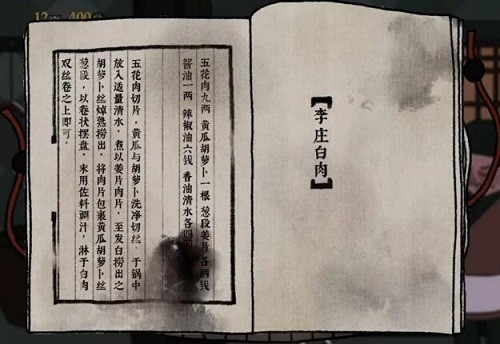 【李庄白肉】
五花肉九两 黄瓜胡萝卜一根 葱段姜片各两钱
酱油一两 辣椒油六钱 香油清水各
五花肉切片，黄瓜与胡萝卜洗净切丝。于锅中
放入适量清水，煮以姜片肉片，至发白捞出之
胡萝卜丝焯熟捞出，将肉片包裹黄瓜胡萝卜丝
葱段，以卷状摆盘，末用佐料调汁，淋于白肉
双丝卷之上即可。